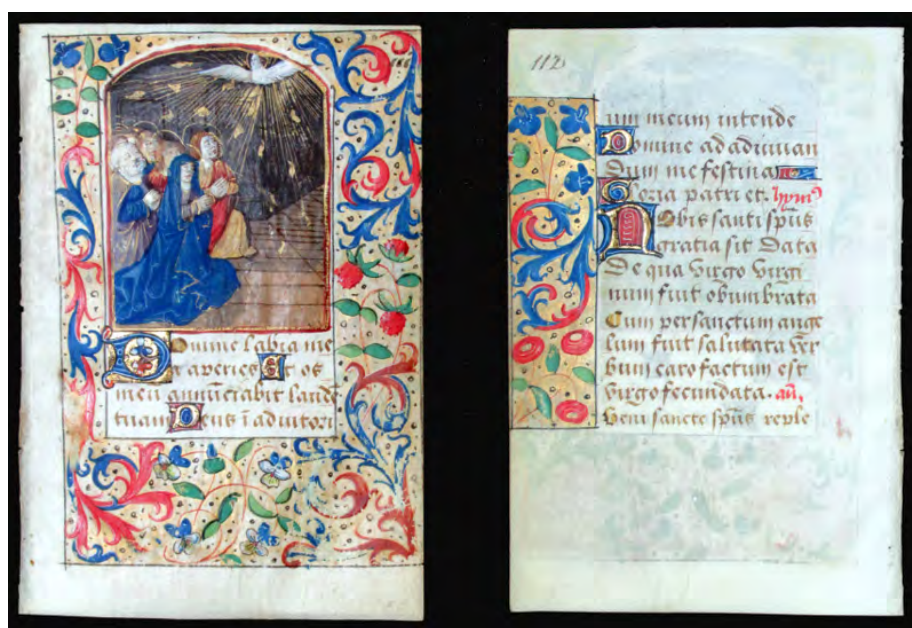 Domine labia me
a aperies Et os
meū annūciabit laude
tuam Deus ī adiutori
112
um meum intende
Domine ad adiuuan
dum me festina
Gloria patri et. hymꝰ
Nobis santi spūs
gratia sit data
De qua virgo virgi
num fuit obumbrata
Cum per sanctum ange
lum fuit salutata ver
bum caro factum est
virgo fecundata. añ,
Veni sancte spūs reple